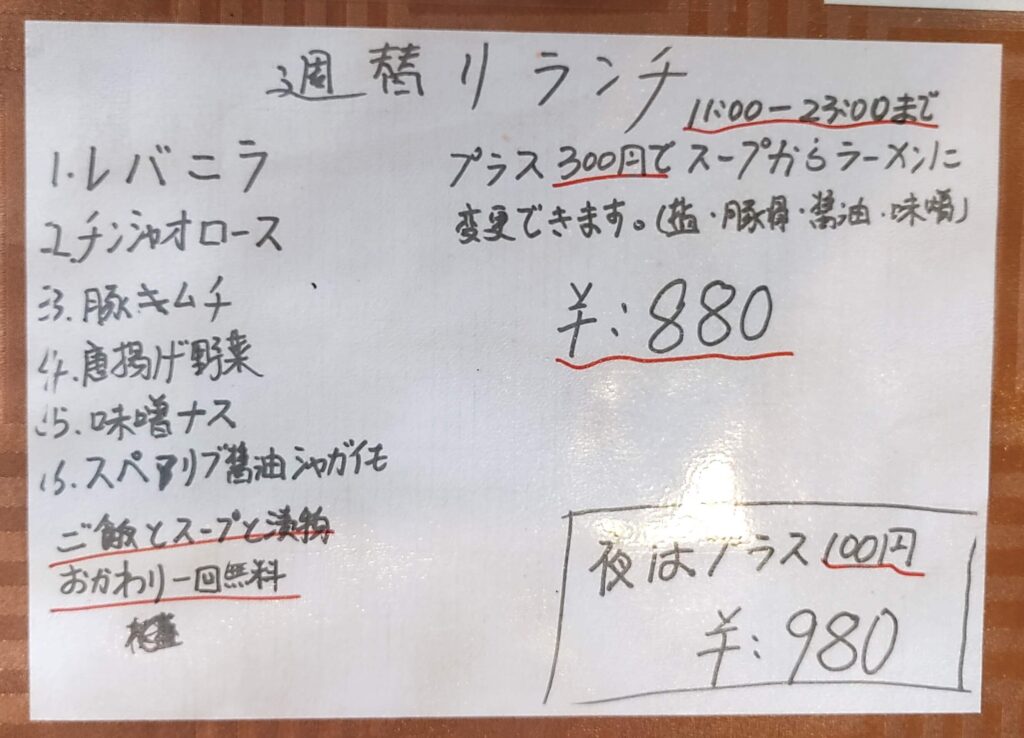 週替りランチ
11:00-23:00まで
1.レバニラ
2.チンジャオロース
3.豚キムチ
4.唐揚げ野菜
5.味噌ナス
6.スペアリブ醤油ジャガイモ
ご飯とスープと漬物
おかわり一回無料
プラス300円でスープからラーメンに
変更できます。(塩・豚骨・醤油・味噌)
¥:880
夜はプラス100円
¥:980